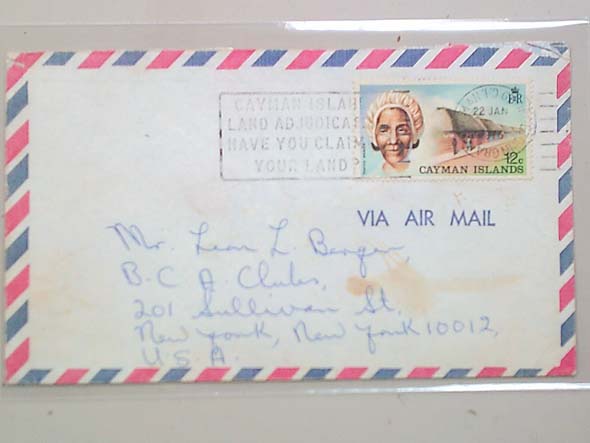 CAYMAN ISLAN
LAND ADJUDICA
HAVE YOU CLAIM
YOUR LAND?
E R
22 JAN
12c
CAYMAN ISLANDS
VIA AIR MAIL
Mr. Leon L. Berger,
B. C. A. Clubs,
201 Sullivan St.
New York, New York 10012,
U.S.A.